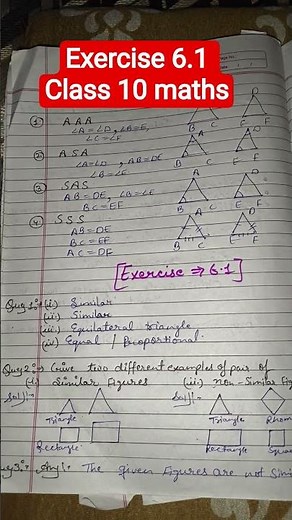 Exercise 6.1
Class 10 maths
① AAA
∠A=∠D, ∠B=∠E,
∠C=∠F
A D
B C E F
② ASA
∠A=∠D, AB=DE
∠B=∠E
A D
B C E F
③ SAS
AB=DE, ∠B=∠E
BC=EF
A D
B C E F
④ SSS
AB=DE
BC=EF
AC=DF
A D
B C E F
[Exercise ⇒ 6.1]
Ques 1:- (i) Similar
(ii) Similar
(iii) Equilateral triangle
(iv) Equal / Proportional.
Ques 2:- Give two different examples of pair of
(i) Similar figures (ii) non-Similar Fig
Sol:- Sol:-
Triangle Triangle Rhom
Rectangle Rectangle Squa
Ques 3:- The given figures are not Simi